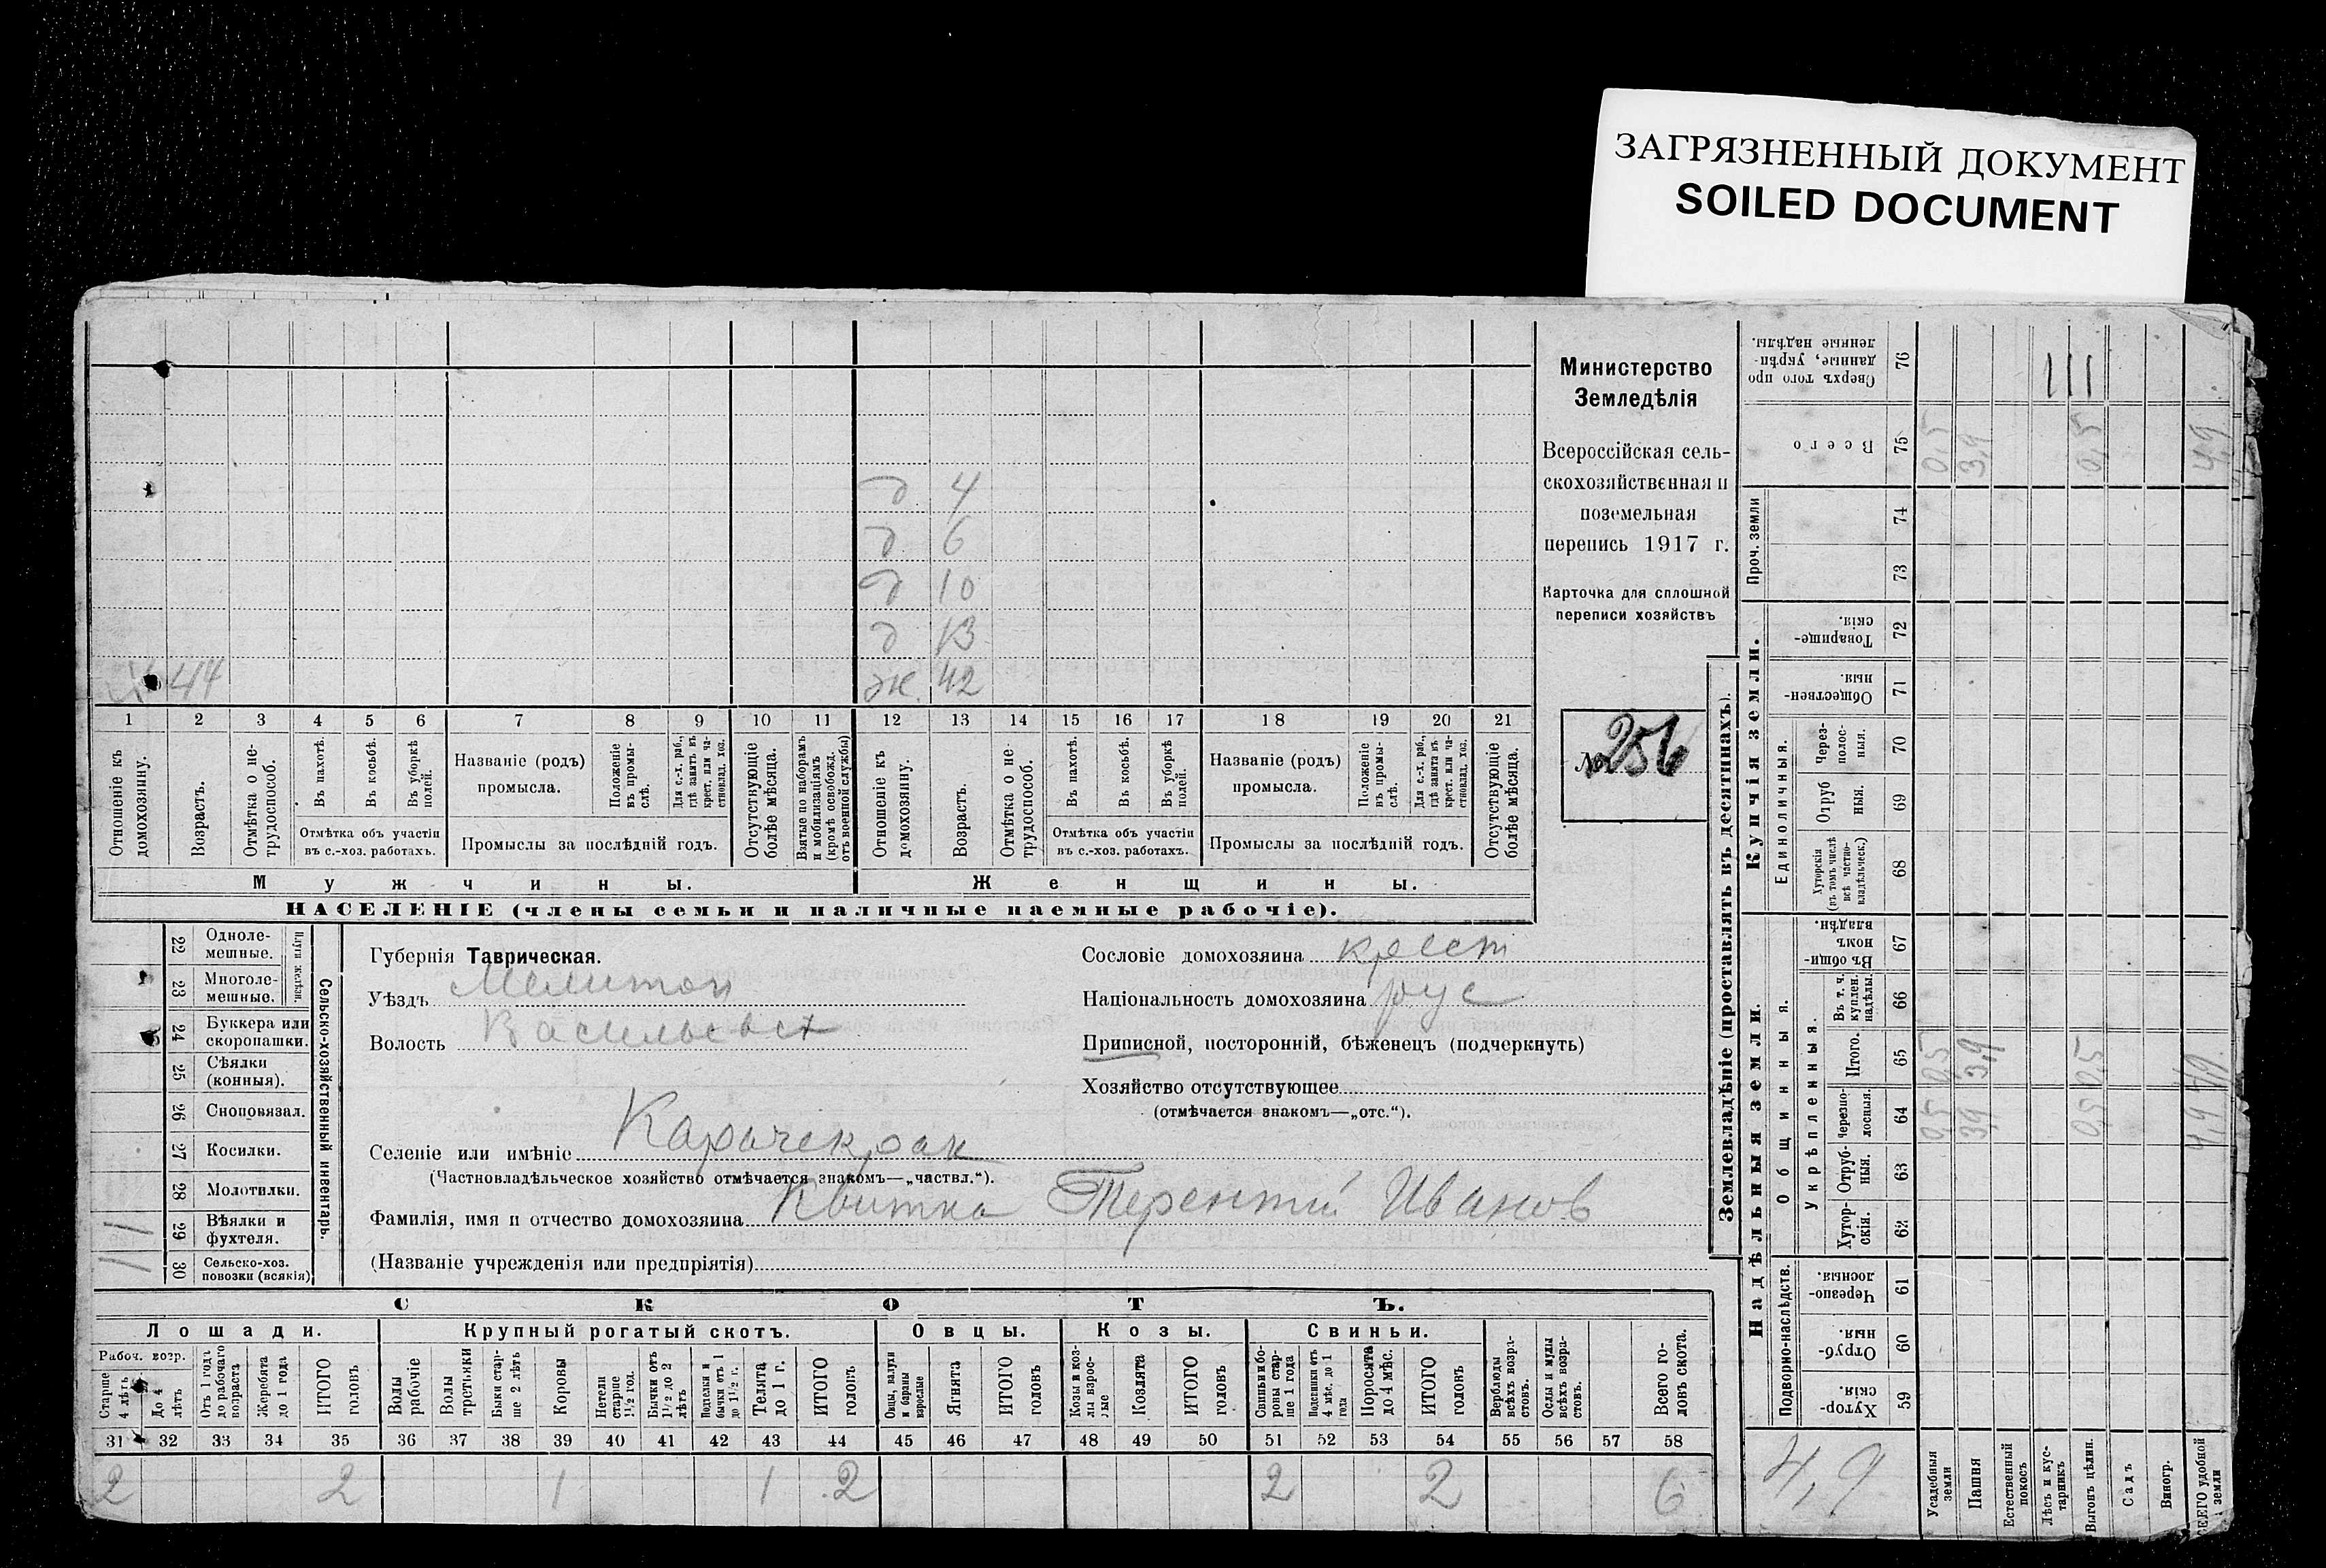 ЗАГРЯЗНЕННЫЙ ДОКУМЕНТ
SOILED DOCUMENT
Министерство
Земледѣлія
Всероссійская сель-
скохозяйственная и
поземельная
перепись 1917 г.
Карточка для сплошной
переписи хозяйствъ
№ 256
д 4
д 6
д 10
д 13
х 44 ж. 42
1 2 3 4 5 6 7 8 9 10 11 12 13 14 15 16 17 18 19 20 21
Отношеніе къ домохозяину.
Возрастъ.
Отмѣтка о не-трудоспособ.
Въ пахотѣ.
Въ косьбѣ.
Въ уборкѣ полей.
Отмѣтка объ участіи
въ с.-хоз. работахъ.
Названіе (родъ)
промысла.
Положеніе въ промы-слѣ.
Для с.-х. раб., гдѣ занятъ въ крест. или ча-стновлад. хоз.
Промыслы за послѣдній годъ.
Отсутствующіе болѣе мѣсяца.
Взятые по наборамъ и мобилизаціямъ (кромѣ освобожд. отъ военной службы)
Отношеніе къ домохозяину.
Возрастъ.
Отмѣтка о не-трудоспособ.
Въ пахотѣ.
Въ косьбѣ.
Въ уборкѣ полей.
Отмѣтка объ участіи
въ с.-хоз. работахъ.
Названіе (родъ)
промысла.
Положеніе въ промы-слѣ.
Для с.-х. раб., гдѣ занята въ крест. или ча-стновлад. хоз.
Промыслы за послѣдній годъ.
Отсутствующіе болѣе мѣсяца.
Мужчины. Женщины.
НАСЕЛЕНІЕ (члены семьи и наличные наемные рабочіе).
Сельско-хозяйственный инвентарь.
Плуги желѣзн.
22 Одноле-мешные.
23 Многоле-мешные.
24 Буккера или скоропашки.
25 Сѣялки (конныя).
26 Сноповязал.
27 Косилки.
28 Молотилки.
1 29 Вѣялки и фухтеля.
1 30 Сельско-хоз. повозки (всякія)
Губернія Таврическая.
Уѣздъ Мелитоп
Волость Васильевск
Сословіе домохозяина крест
Національность домохозяина рус
Приписной, посторонній, бѣженецъ (подчеркнуть)
Хозяйство отсутствующее
(отмѣчается знакомъ—„отс.“).
Селеніе или имѣніе Карачекрак
(Частновладѣльческое хозяйство отмѣчается знакомъ—„частвл.“).
Фамилія, имя и отчество домохозяина Квитка Терентій Иванов
(Названіе учрежденія или предпріятія)
СКОТЪ.
Лошади. Крупный рогатый скотъ. Овцы. Козы. Свиньи.
Рабоч. возр.
Старше 4 лѣтъ
До 4 лѣтъ
Отъ 1 года до рабочаго возраста
Жеребята до 1 года
ИТОГО головъ
Волы рабочіе
Волы третьяки
Быки стар-ше 2 лѣтъ
Коровы
Нетели старше 1½ год.
Бычки отъ 1½ до 2 лѣтъ
Подтелки и бычки отъ 1 до 1½ г.
Телята до 1 г.
ИТОГО головъ
Овцы, валухи и бараны взрослые
Ягнята
ИТОГО головъ
Козы и коз-лы взрос-лые
Козлята
ИТОГО головъ
Свиньи и бо-ровы стар-ше 1 года
Подсвинки отъ 4 мѣс. до 1 года
Поросята до 4 мѣс.
ИТОГО головъ
Верблюды всѣхъ возра-стовъ.
Ослы и мулы всѣхъ возра-стовъ.
Всего го-ловъ скота.
31 32 33 34 35 36 37 38 39 40 41 42 43 44 45 46 47 48 49 50 51 52 53 54 55 56 57 58
2 2 1 1 2 2 2 6
Землевладѣніе (проставлять въ десятинахъ).
Сверхъ того про-данные, укрѣп-ленные надѣлы. 76
Всего 75 0,5 3,9 0,5 4,9
Проч. земли 74
73
Купчія земли.
Товарище-скія. 72
Обществен-ныя. 71
Единоличныя.
Через-полос-ныя. 70
Отруб-ныя. 69
Хуторскія (въ томъ числѣ всѣ частно-владѣльческ.) 68
Надѣльныя земли.
Общинныя.
Въ общи-номъ владѣн. 67
Укрѣпленныя.
Въ т. ч. куплен. надѣлы. 66
Итого. 65 0,5 3,9 0,5 4,9
Черезпо-лосныя. 64 0,5 3,9 0,5 4,9
Отруб-ныя. 63
Хутор-скія. 62
Подворно-наслѣдств.
Черезпо-лосныя. 61
Отруб-ныя. 60
Хутор-скія. 59
4,9
Усадебныя земли
Пашня
Естественный покосъ
Лѣсъ и кус-тарникъ
Выгонъ цѣлин.
Садъ
Виногр.
ВСЕГО удобной земли